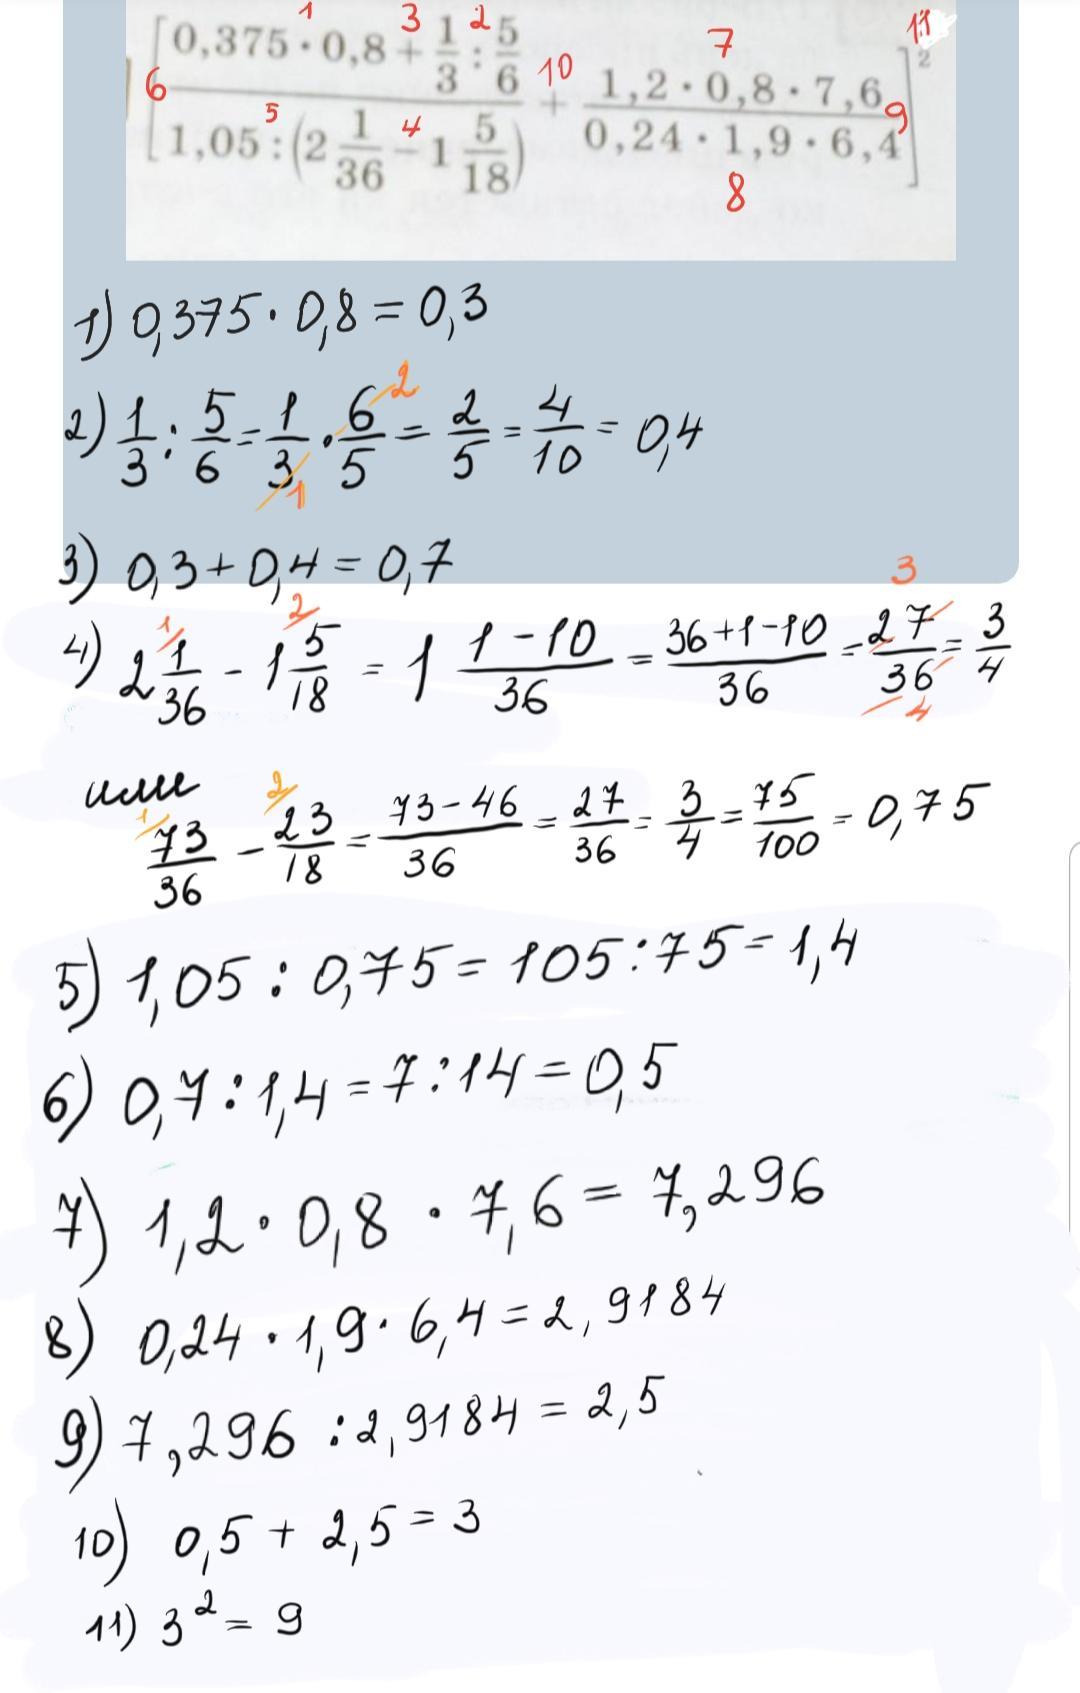 [ (0,375 · 0,8 + 1/3 : 5/6) / (1,05 : (2 1/36 - 1 5/18)) + (1,2 · 0,8 · 7,6) / (0,24 · 1,9 · 6,4) ]²
1 3 2 7 11
6 10 9
5 4
8
1) 0,375 · 0,8 = 0,3
2) 1/3 : 5/6 = 1/3 · 6/5 = 2/5 = 4/10 = 0,4
2
1
3) 0,3 + 0,4 = 0,7
1 2 3
4) 2 1/36 - 1 5/18 = 1 (1-10)/36 = (36+1-10)/36 = 27/36 = 3/4
4
или
1 2
73/36 - 23/18 = (73-46)/36 = 27/36 = 3/4 = 75/100 = 0,75
5) 1,05 : 0,75 = 105 : 75 = 1,4
6) 0,7 : 1,4 = 7 : 14 = 0,5
7) 1,2 · 0,8 · 7,6 = 7,296
8) 0,24 · 1,9 · 6,4 = 2,9184
9) 7,296 : 2,9184 = 2,5
10) 0,5 + 2,5 = 3
11) 3² = 9